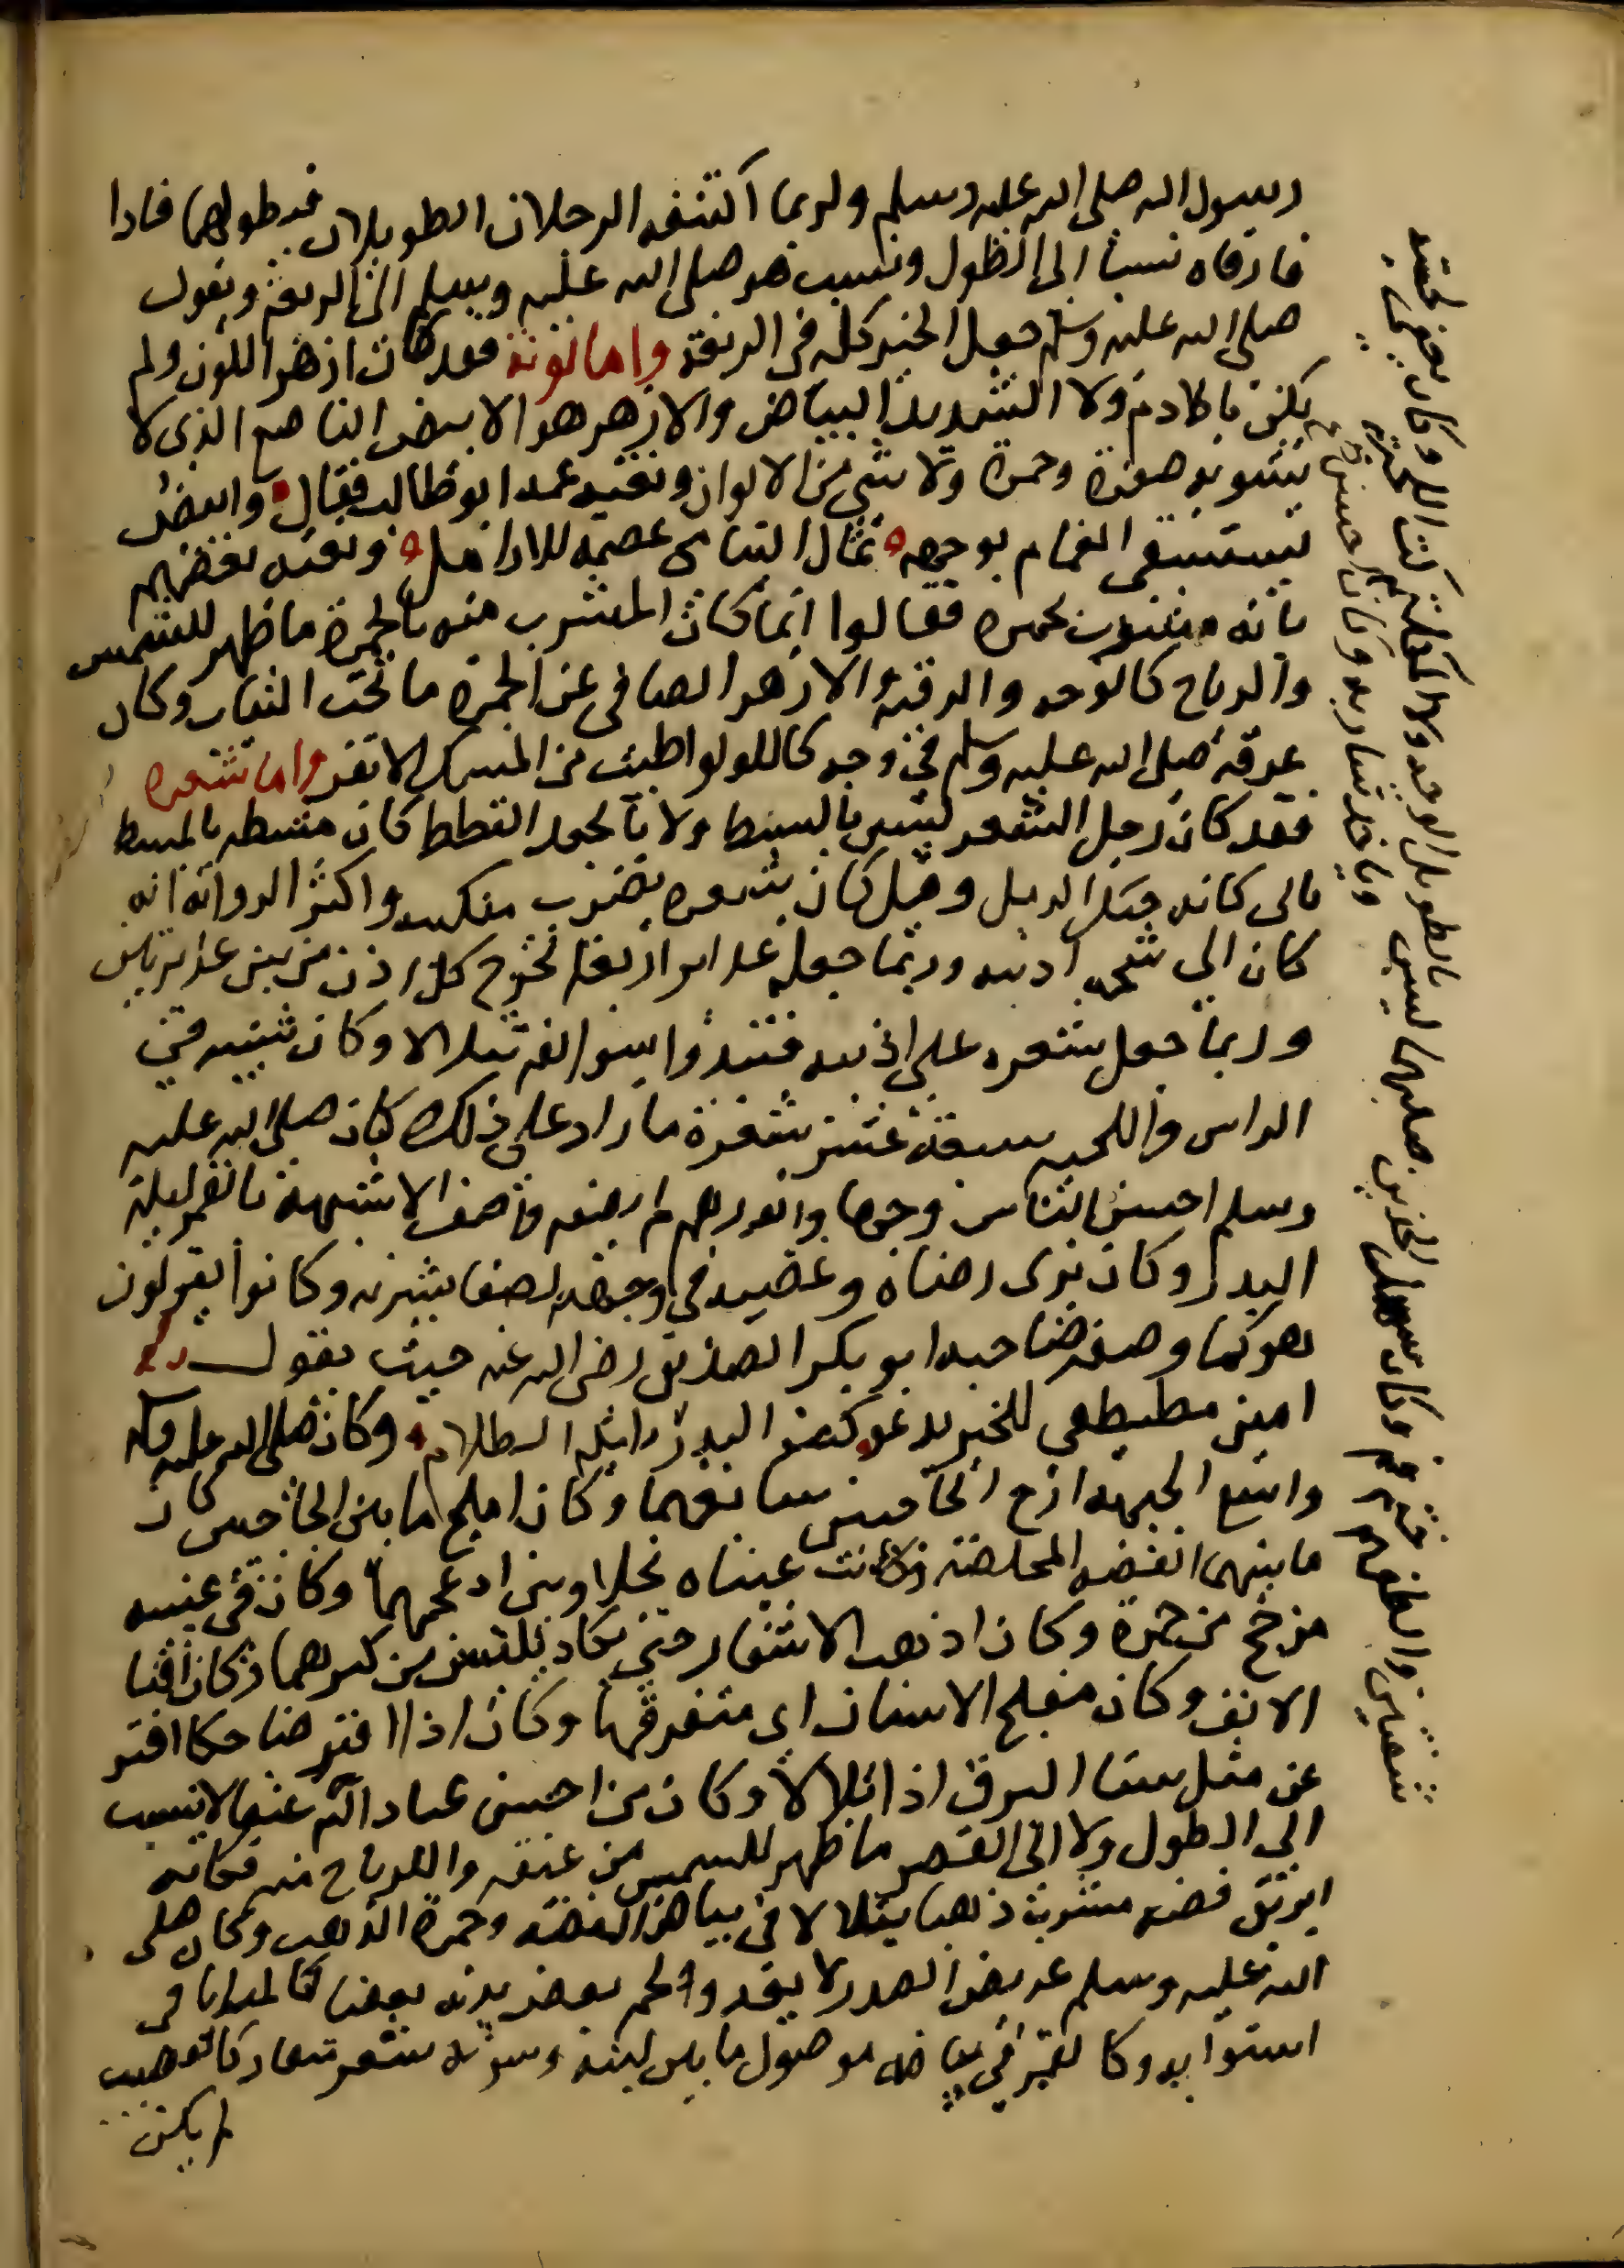 رسول الله صلى الله عليه وسلم ولربما اكتنفه الرجلان الطويلان فيطولهما فاذا
فارقاه نسبا الى الطول ونسب هو صلى الله عليه وسلم الى الربعة ويقول
صلى الله عليه وسلم جعل الخير كله في الربعة واما لونه فقد كان ازهر اللون ولم
يكن بالادم ولا الشديد البياض والازهر هو الابيض الناصع الذي لا
تشوبه صفرة وحمرة ولا شي من الالوان ونعته عمه ابو طالب فقال وابيض
يستسقى الغمام بوجهه ثمال اليتامى عصمة للارامل ونعته بعضهم
بانه مشوب بحمرة فقالوا انما كان المشرب منه بالحمرة ما ظهر للشمس
والرياح كالوجه والرقبة والازهر الصافي عن الحمرة ما تحت الثياب وكان
عرقه صلى الله عليه وسلم في وجهه كاللولو اطيب من المسك الاذفر واما شعره
فقد كان رجل الشعر ليس بالسبط ولا بالجعد القطط كان مشطه بالمشط
ياتي كانه حبك الرمل وقيل كان شعره يضرب منكبيه واكثر الرواية انه
كان الى شحمة اذنيه وربما جعله غدائر اربعا تخرج كل اذن من بين غديرتين
وربما جعل شعره على اذنيه فتبدوا سوالفه تتلالا وكان شيبه في
الراس واللحية سبعة عشر شعرة ما زاد على ذلك كان صلى الله عليه
وسلم احسن الناس وجها وانورهم لم يصفه واصف الا شبهه بالقمر ليلة
البدر وكان يرى رضاه وغضبه في وجهه لصفا بشرته وكانوا يقولون
هو كما وصفه صاحبه ابو بكر الصديق رضي الله عنه حيث يقول
امين مصطفى للخير يدعو كضو البدر زايله الظلام وكان صلى الله عليه وسلم
واسع الجبهة ازج الحاجبين سابغهما وكان ابلج ما بين الحاجبين كان
ما بينهما الفضة المخلصة وكانت عيناه نجلاوين ادعجهما وكان في عينيه
مزج من حمرة وكان اهدب الاشفار حتى تكاد تلتبس من كثرهما وكان اقنا
الانف وكان مفلج الاسنان اى متفرقها وكان اذا افتر ضاحكا افتر
عن مثل سنا البرق اذا تلالا وكان من احسن عباد الله عنقا لا ينسب
الى الطول ولا الى القصر ما ظهر للشمس من عنقه والرياح منه فكانه
ابريق فضة مشوب ذهبا يتلالا في بياض الفضة وحمرة الذهب وكان صلى
الله عليه وسلم عريض الصدر لا يعدوا لحم بعض بدنه بعضا كالمرايا في
استوايه وكالقمر في بياضه موصول ما بين لبته وسرته بشعر منقاد كالقضيب
لم يكن
بالطويل الوجه ولا المكلثم كث اللحية وكان يعفي لحيته
وياخذ شاربه وكان احسن
شفتين والطفهم ختم فم وكان سهل الخدين صلبهما ليس